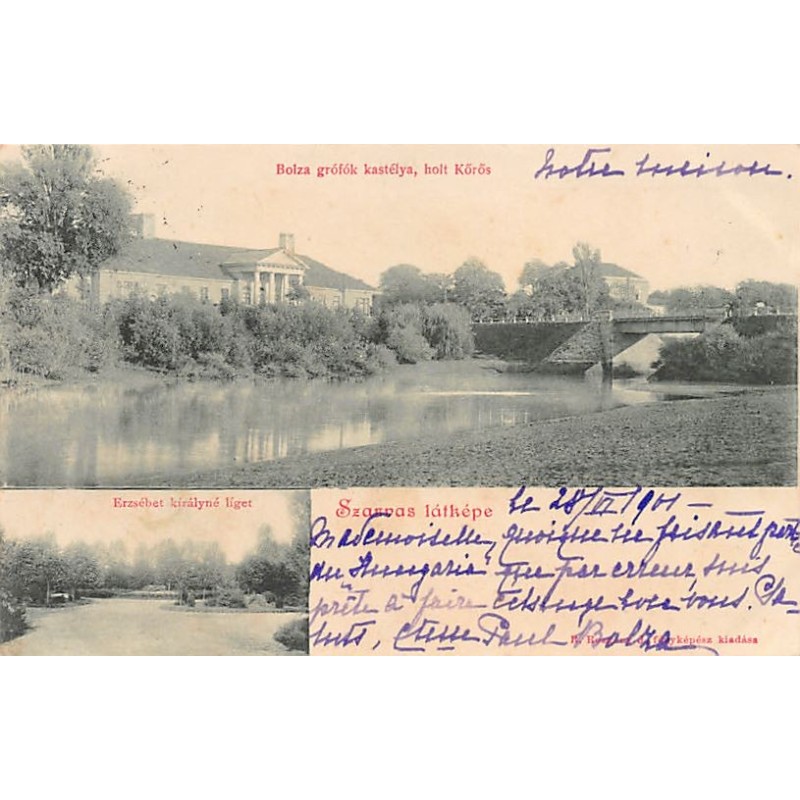 Bolza grófók kastélya, holt Kőrős
Notre maison.
Erzsébet királyné liget
Szarvas látképe
le 28/VI 1901 —
Mademoiselle, quoique ne faisant partie
du "Hungaria" que par erreur, suis
prête à faire échange avec vous. Sa-
luts, Ctesse Paul Bolza
fényképész kiadása